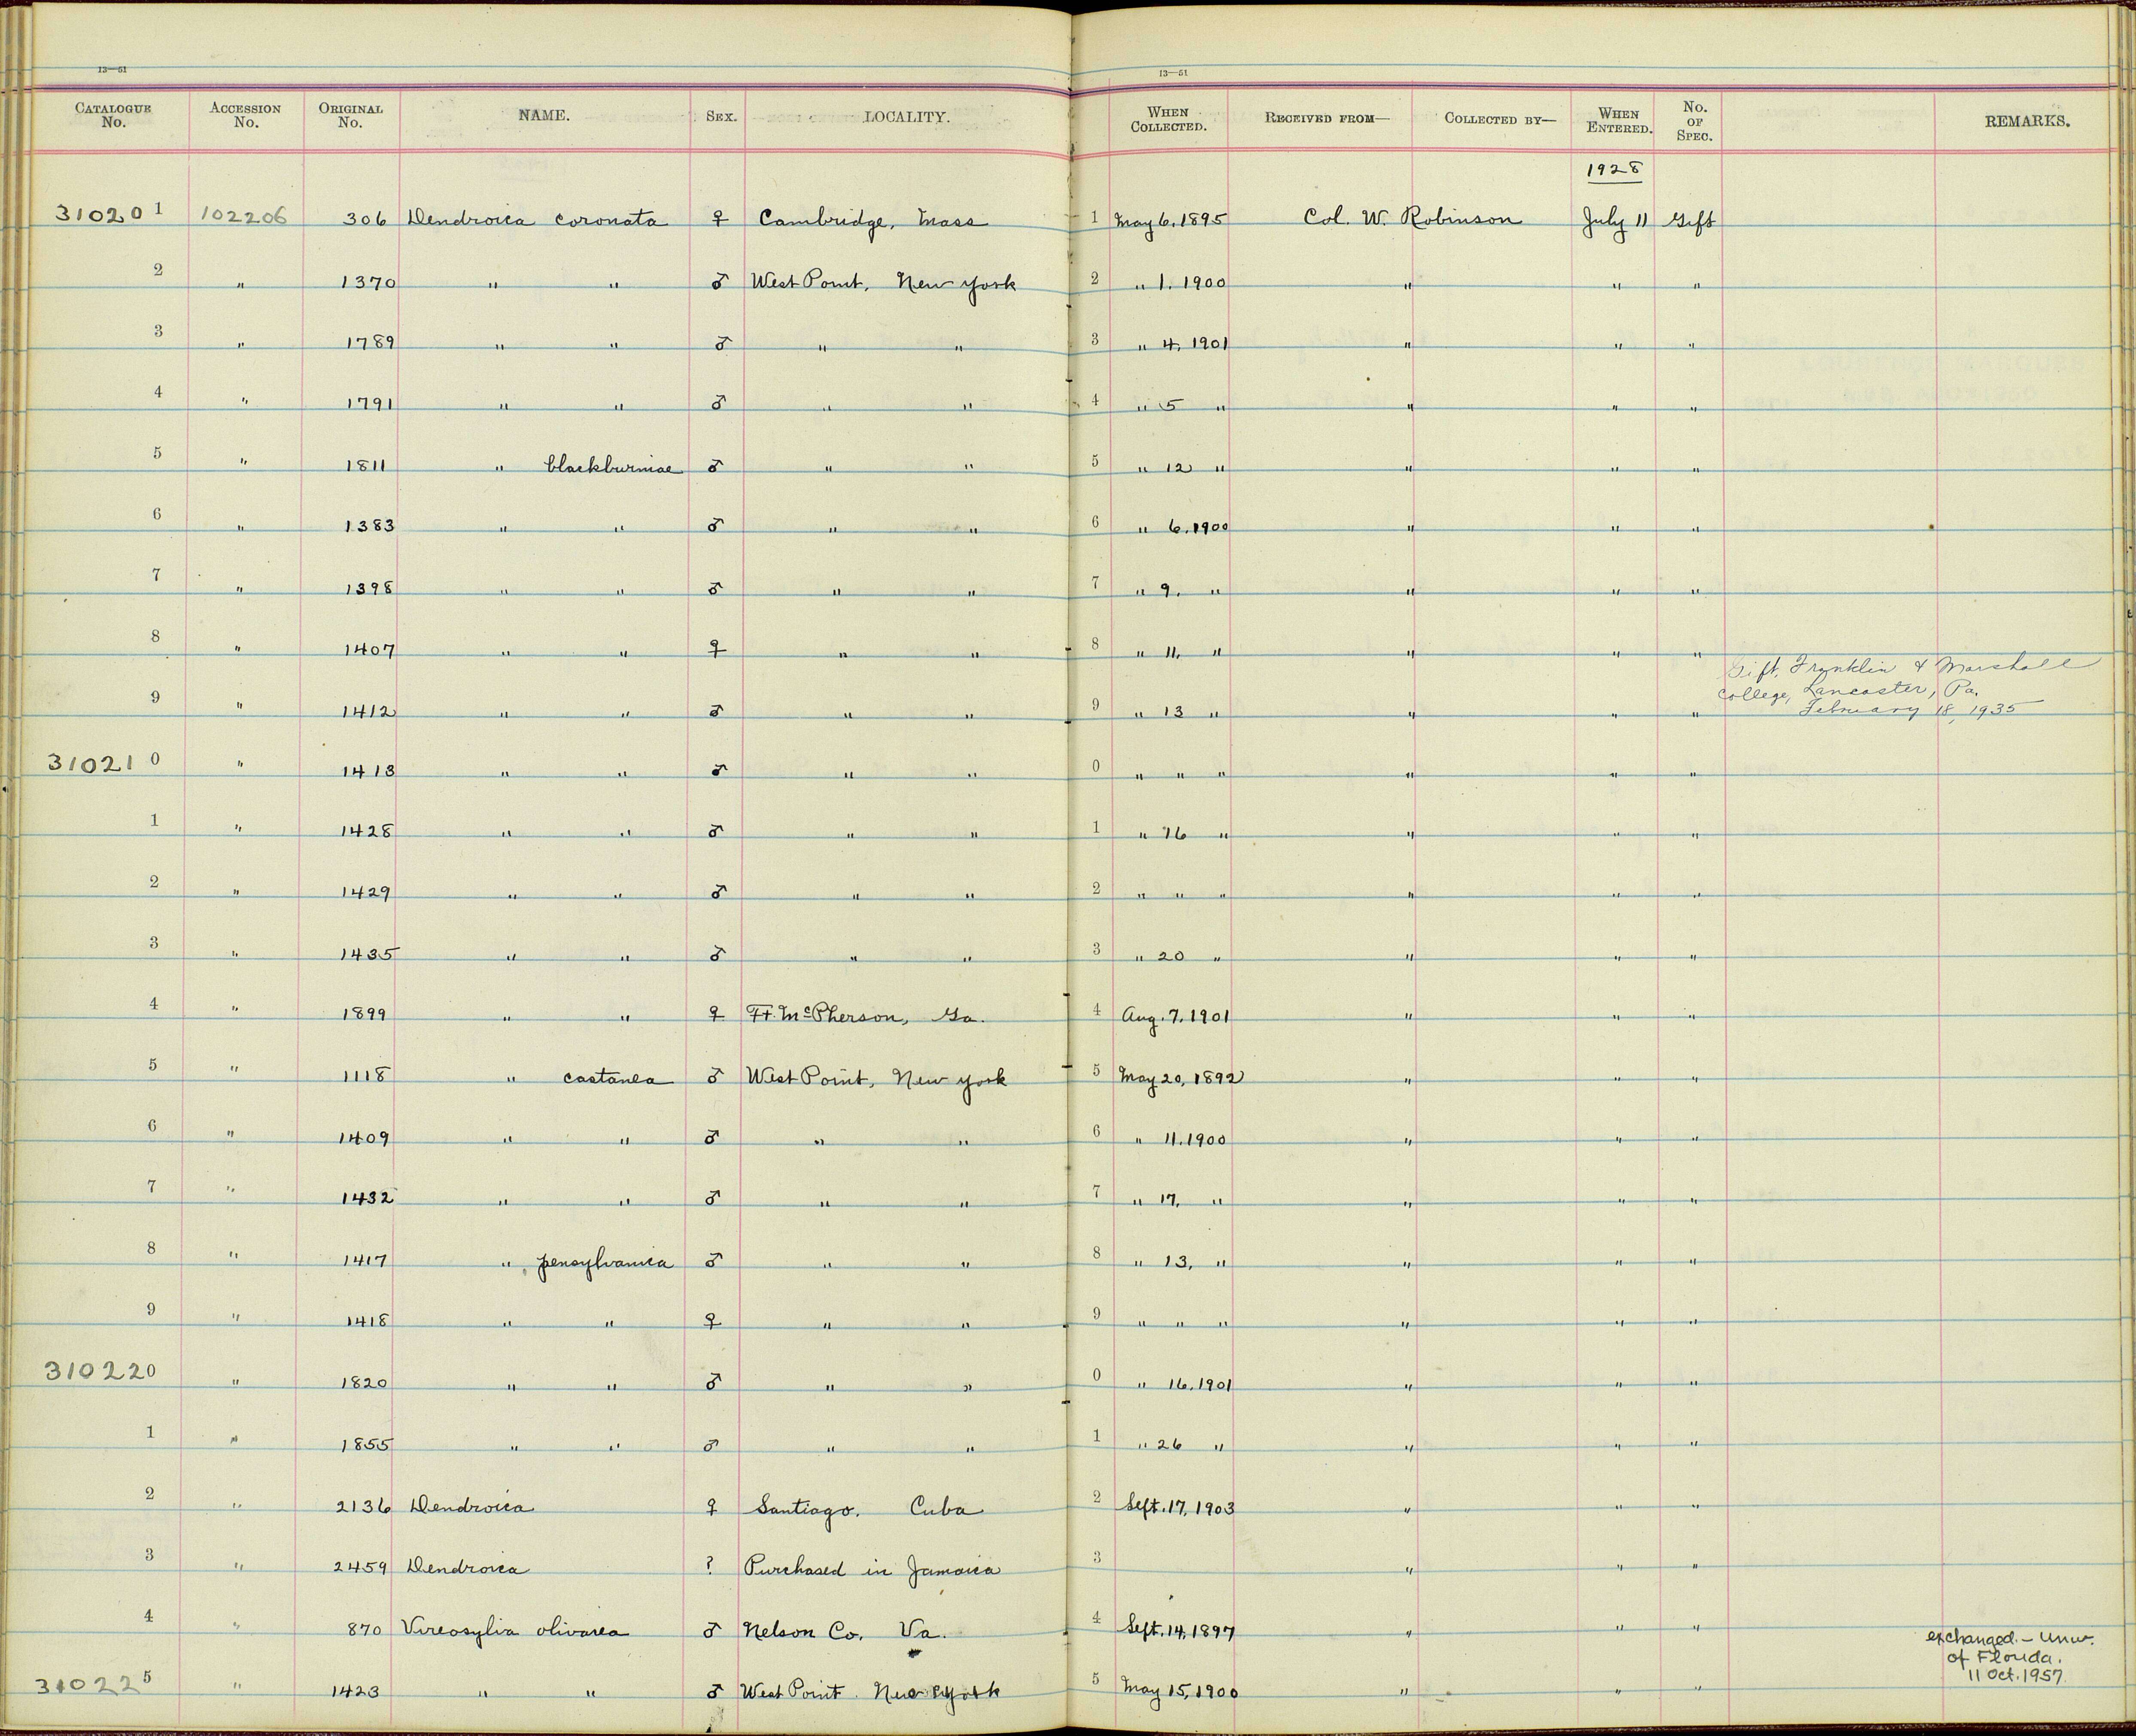 13—51 13—51
CATALOGUE No. ACCESSION No. ORIGINAL No. NAME. SEX. LOCALITY. WHEN COLLECTED. RECEIVED FROM— COLLECTED BY— WHEN ENTERED. No. OF SPEC. REMARKS.
1928
310201 102206 306 Dendroica coronata ♀ Cambridge, Mass 1 May 6, 1895 Col. W. Robinson July 11 Gift
2 " 1370 " " ♂ West Point, New York 2 " 1, 1900 " " "
3 " 1789 " " ♂ " " 3 " 4, 1901 " " "
4 " 1791 " " ♂ " " 4 " 5 " " " "
5 " 1811 " blackburniae ♂ " " 5 " 12 " " " "
6 " 1383 " " ♂ " " 6 " 6, 1900 " " "
7 " 1398 " " ♂ " " 7 " 9. " " " "
8 " 1407 " " ♀ " " 8 " 11. " " " "
Gift, Franklin & Marshall
College, Lancaster, Pa.
9 " 1412 " " ♂ " " 9 " 13 " " " " February 18, 1935
310210 " 1413 " " ♂ " " 0 " " " " " "
1 " 1428 " " ♂ " " 1 " 16 " " " "
2 " 1429 " " ♂ " " 2 " " " " " "
3 " 1435 " " ♂ " " 3 " 20 " " " "
4 " 1899 " " ♀ Ft. McPherson, Ga. 4 Aug. 7, 1901 " " "
5 " 1118 " castanea ♂ West Point, New York 5 May 20, 1892 " " "
6 " 1409 " " ♂ " " 6 " 11, 1900 " " "
7 " 1432 " " ♂ " " 7 " 17, " " " "
8 " 1417 " pensylvanica ♂ " " 8 " 13, " " " "
9 " 1418 " " ♀ " " 9 " " " " " "
310220 " 1820 " " ♂ " " 0 " 16, 1901 " " "
1 " 1855 " " ♂ " " 1 " 26 " " " "
2 " 2136 Dendroica ♀ Santiago. Cuba 2 Sept. 17, 1903 " " "
3 " 2459 Dendroica ? Purchased in Jamaica 3 " " "
4 " 870 Vireosylva olivacea ♂ Nelson Co. Va. 4 Sept. 14, 1897 " " "
exchanged – Univ.
of Florida.
11 Oct. 1957
310225 " 1423 " " ♂ West Point. New York 5 May 15, 1900 " " "